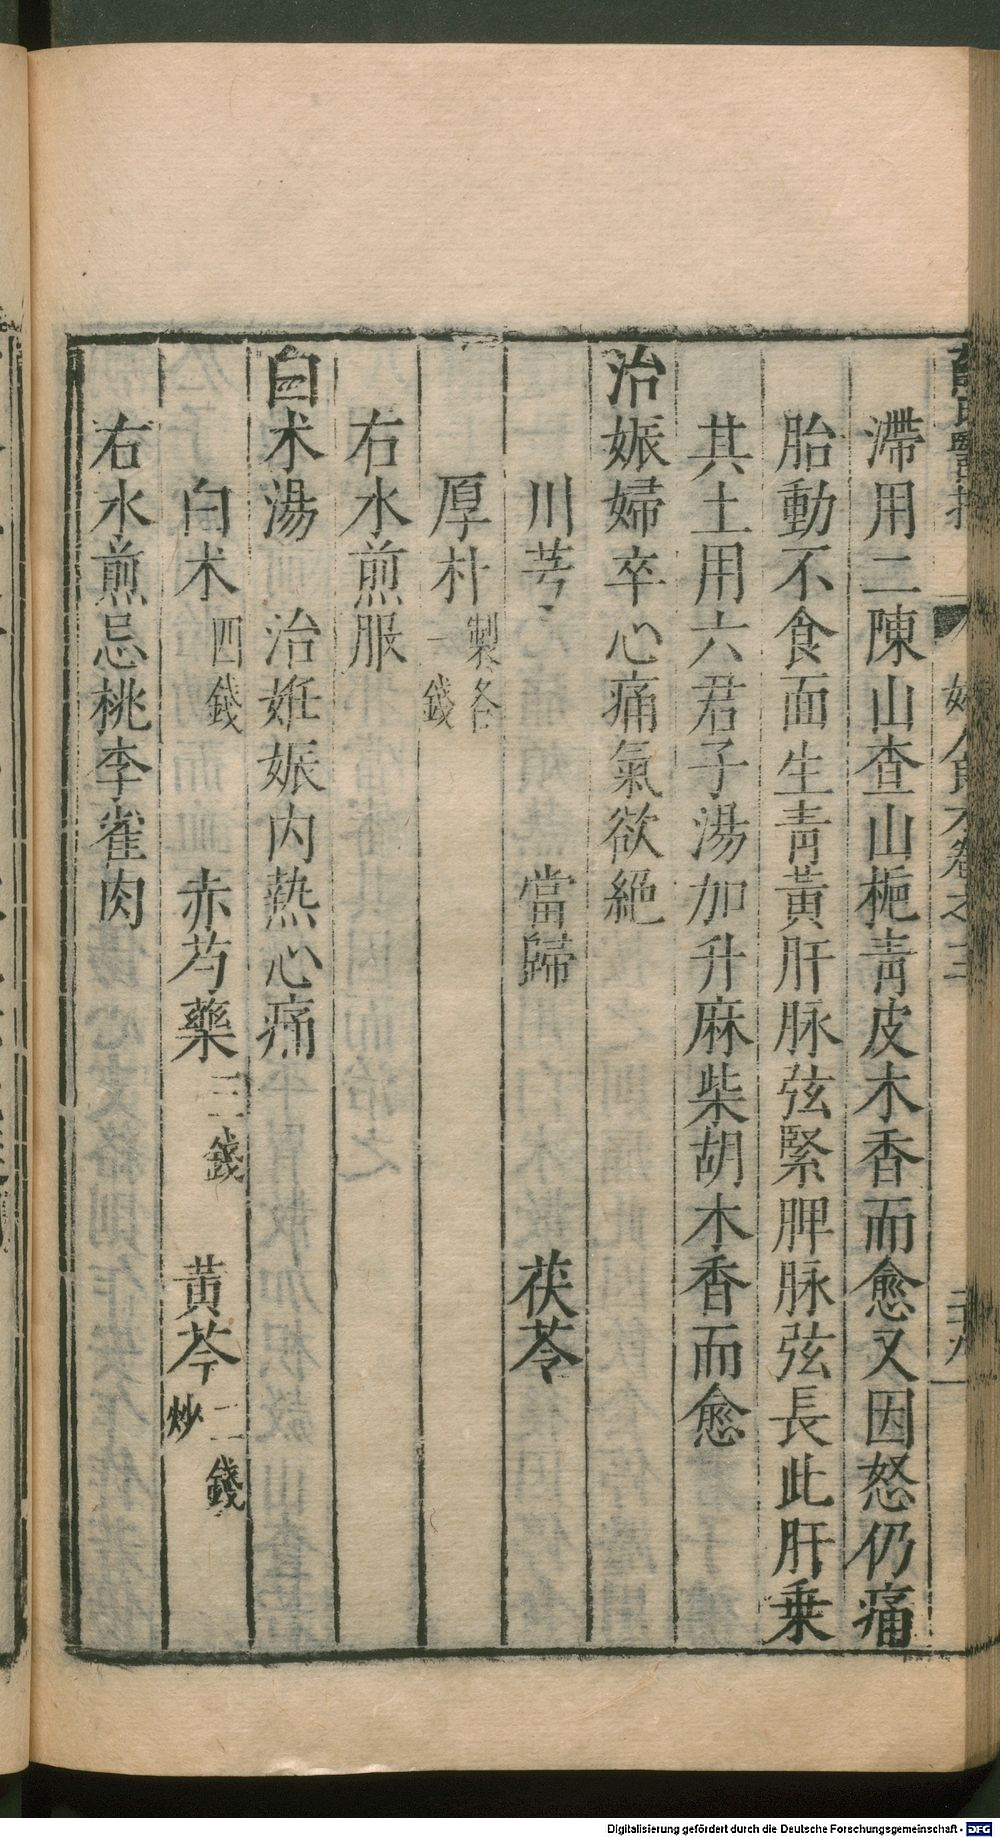 滯用二陳山查山梔靑皮木香而愈又因怒仍痛
胎動不食面生靑黃肝脉弦緊脾脉弦長此肝乗
其土用六君子湯加升麻柴胡木香而愈
治娠婦卒心痛氣欲絕
川芎 當歸 茯苓
厚朴製各一錢
右水煎服
白术湯 治姙娠内熱心痛
白术四錢 赤芍藥三錢 黃芩二錢炒
右水煎忌桃李雀肉
Digitalisierung gefördert durch die Deutsche Forschungsgemeinschaft - DFG